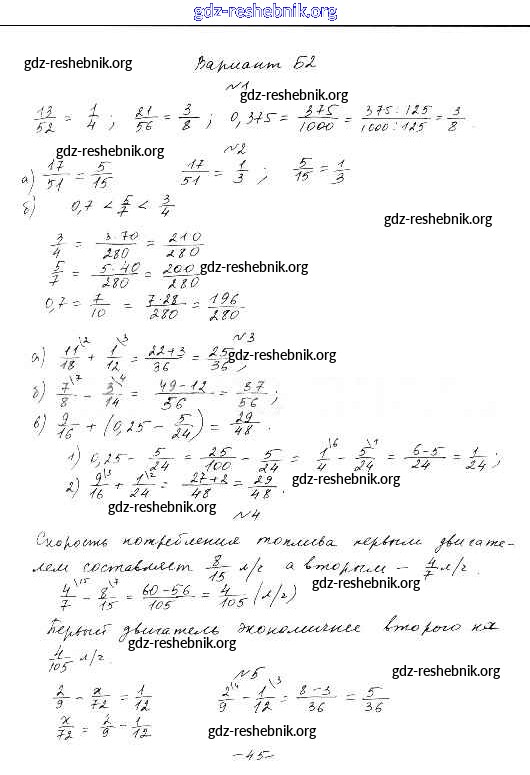 gdz-reshebnik.org
gdz-reshebnik.org
Вариант Б2
№1
gdz-reshebnik.org
13/52 = 1/4 ; 21/56 = 3/8 ; 0,375 = 375/1000 = 375:125/1000:125 = 3/8 .
gdz-reshebnik.org
№2
а) 17/51 = 5/15 17/51 = 1/3 ; 5/15 = 1/3
б) 0,7 < 5/7 < 3/4
gdz-reshebnik.org
3/4 = 3·70/280 = 210/280
5/7 = 5·40/280 = 200/280
gdz-reshebnik.org
0,7 = 7/10 = 7·28/280 = 196/280
№3
а) 11/18 \2 + 1/12 \3 = 22+3/36 = 25/36 ;
gdz-reshebnik.org
б) 7/8 \7 - 3/14 \4 = 49-12/56 = 37/56 ;
в) 9/16 + (0,25 - 5/24) = 29/48 .
1) 0,25 - 5/24 = 25/100 - 5/24 = 1/4 \6 - 5/24 \1 = 6-5/24 = 1/24 ;
2) 9/16 \3 + 1/24 \2 = 27+2/48 = 29/48 .
gdz-reshebnik.org
gdz-reshebnik.org
№4
Скорость потребления топлива первым двигате-
лем составляет 8/15 л/г а вторым - 4/7 л/г.
4/7 \15 - 8/15 \7 = 60-56/105 = 4/105 (л/г)
gdz-reshebnik.org
Первый двигатель экономичнее второго на
4/105 л/г.
gdz-reshebnik.org
№5
gdz-reshebnik.org
2/9 - x/72 = 1/12 2/9 \4 - 1/12 \3 = 8-3/36 = 5/36
x/72 = 2/9 - 1/12
gdz-reshebnik.org
-45-